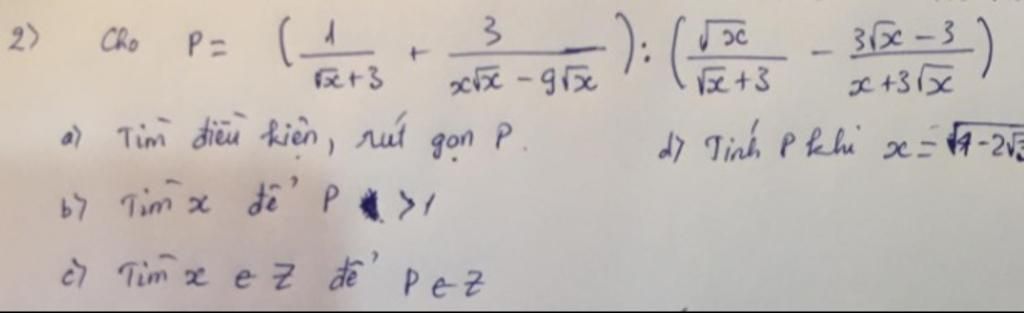 2) Cho P = (1/(√x+3) + 3/(x√x - 9√x)) : (√x/(√x+3) - (3√x - 3)/(x+3√x))
a) Tìm điều kiện, rút gọn P. d) Tính P khi x =
b) Tìm x để P >1
c) Tìm x e Z để P e Z